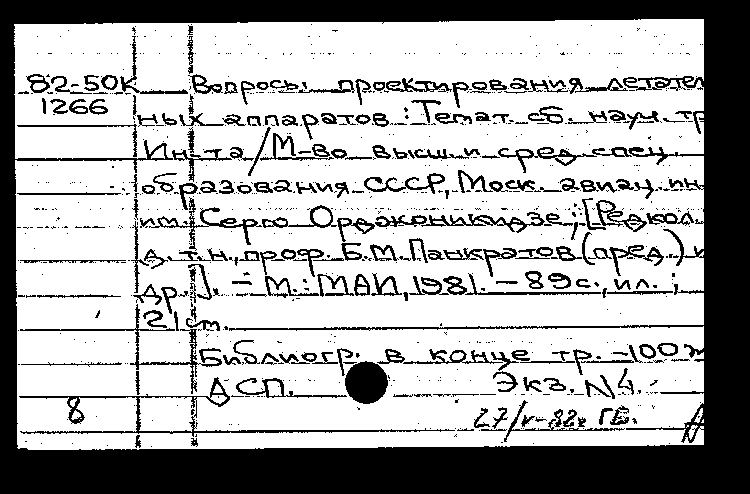 82-50К Вопросы проектирования летател
1266
ных аппаратов : Темат. сб. науч. тр
Ин-та / М-во высш. и сред. спец.
образования СССР, Моск. авиац. ин
им. Серго Орджоникидзе ; [Редкол.
д. т. н., проф. Б. М. Панкратов (пред.) и
др.]. – М. : МАИ, 1981. – 89 с., ил. ;
21 см.
Библиогр. в конце тр. – 100
ДСП. Экз. N4.
8
27/V-82г ГБ.